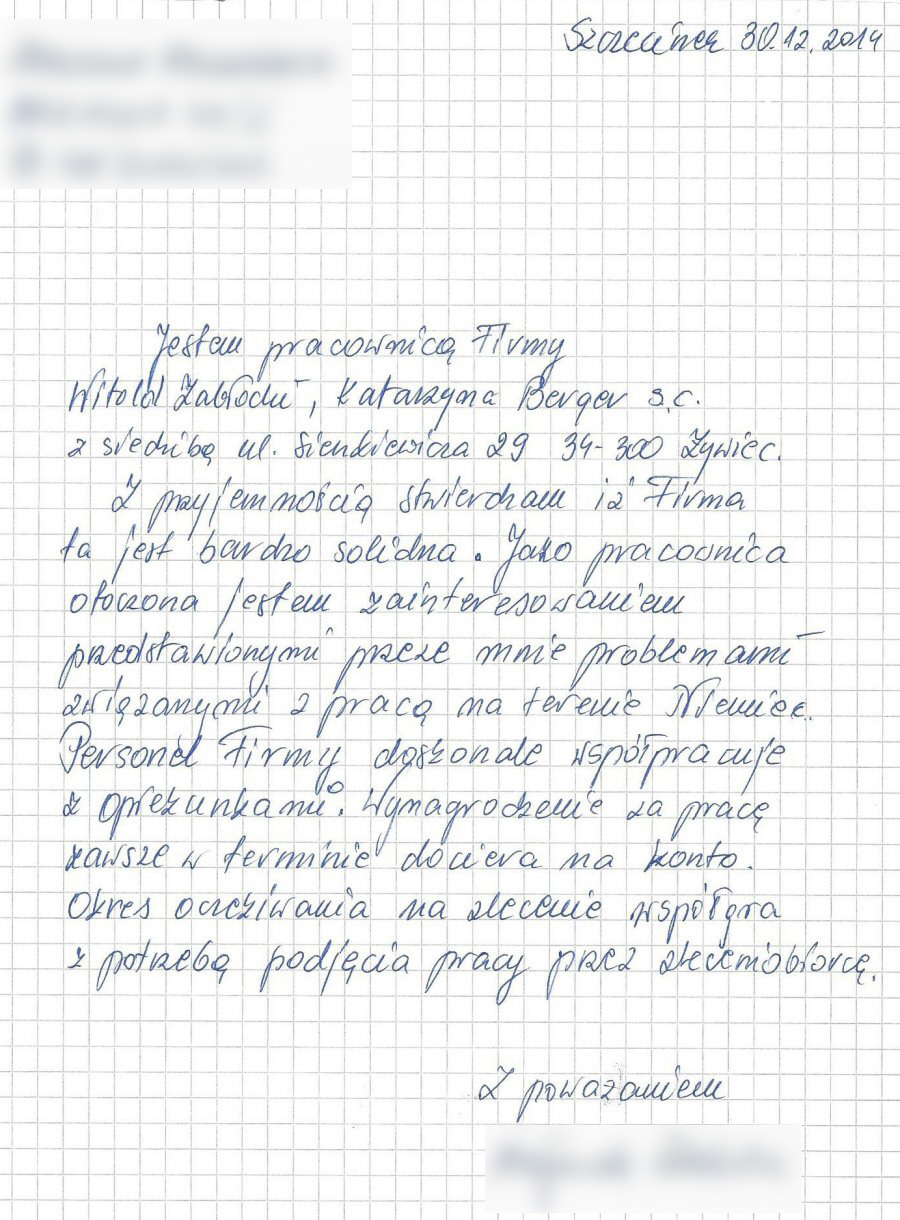 Szczecinek 30.12.2014
Jestem pracownicą Firmy
Witold Zabłocki, Katarzyna Berger s.c.
z siedzibą ul. Sienkiewicza 29 34-300 Żywiec.
Z przyjemnością stwierdzam iż Firma
ta jest bardzo solidna. Jako pracownica
otoczona jestem zainteresowaniem
przedstawionymi przeze mnie problemami
związanymi z pracą na terenie Niemiec.
Personel Firmy doskonale współpracuje
z opiekunkami. Wynagrodzenie za pracę
zawsze w terminie dociera na konto.
Okres oczekiwania na zlecenie współgra
z potrzebą podjęcia pracy przez zleceniobiorcę.
Z poważaniem